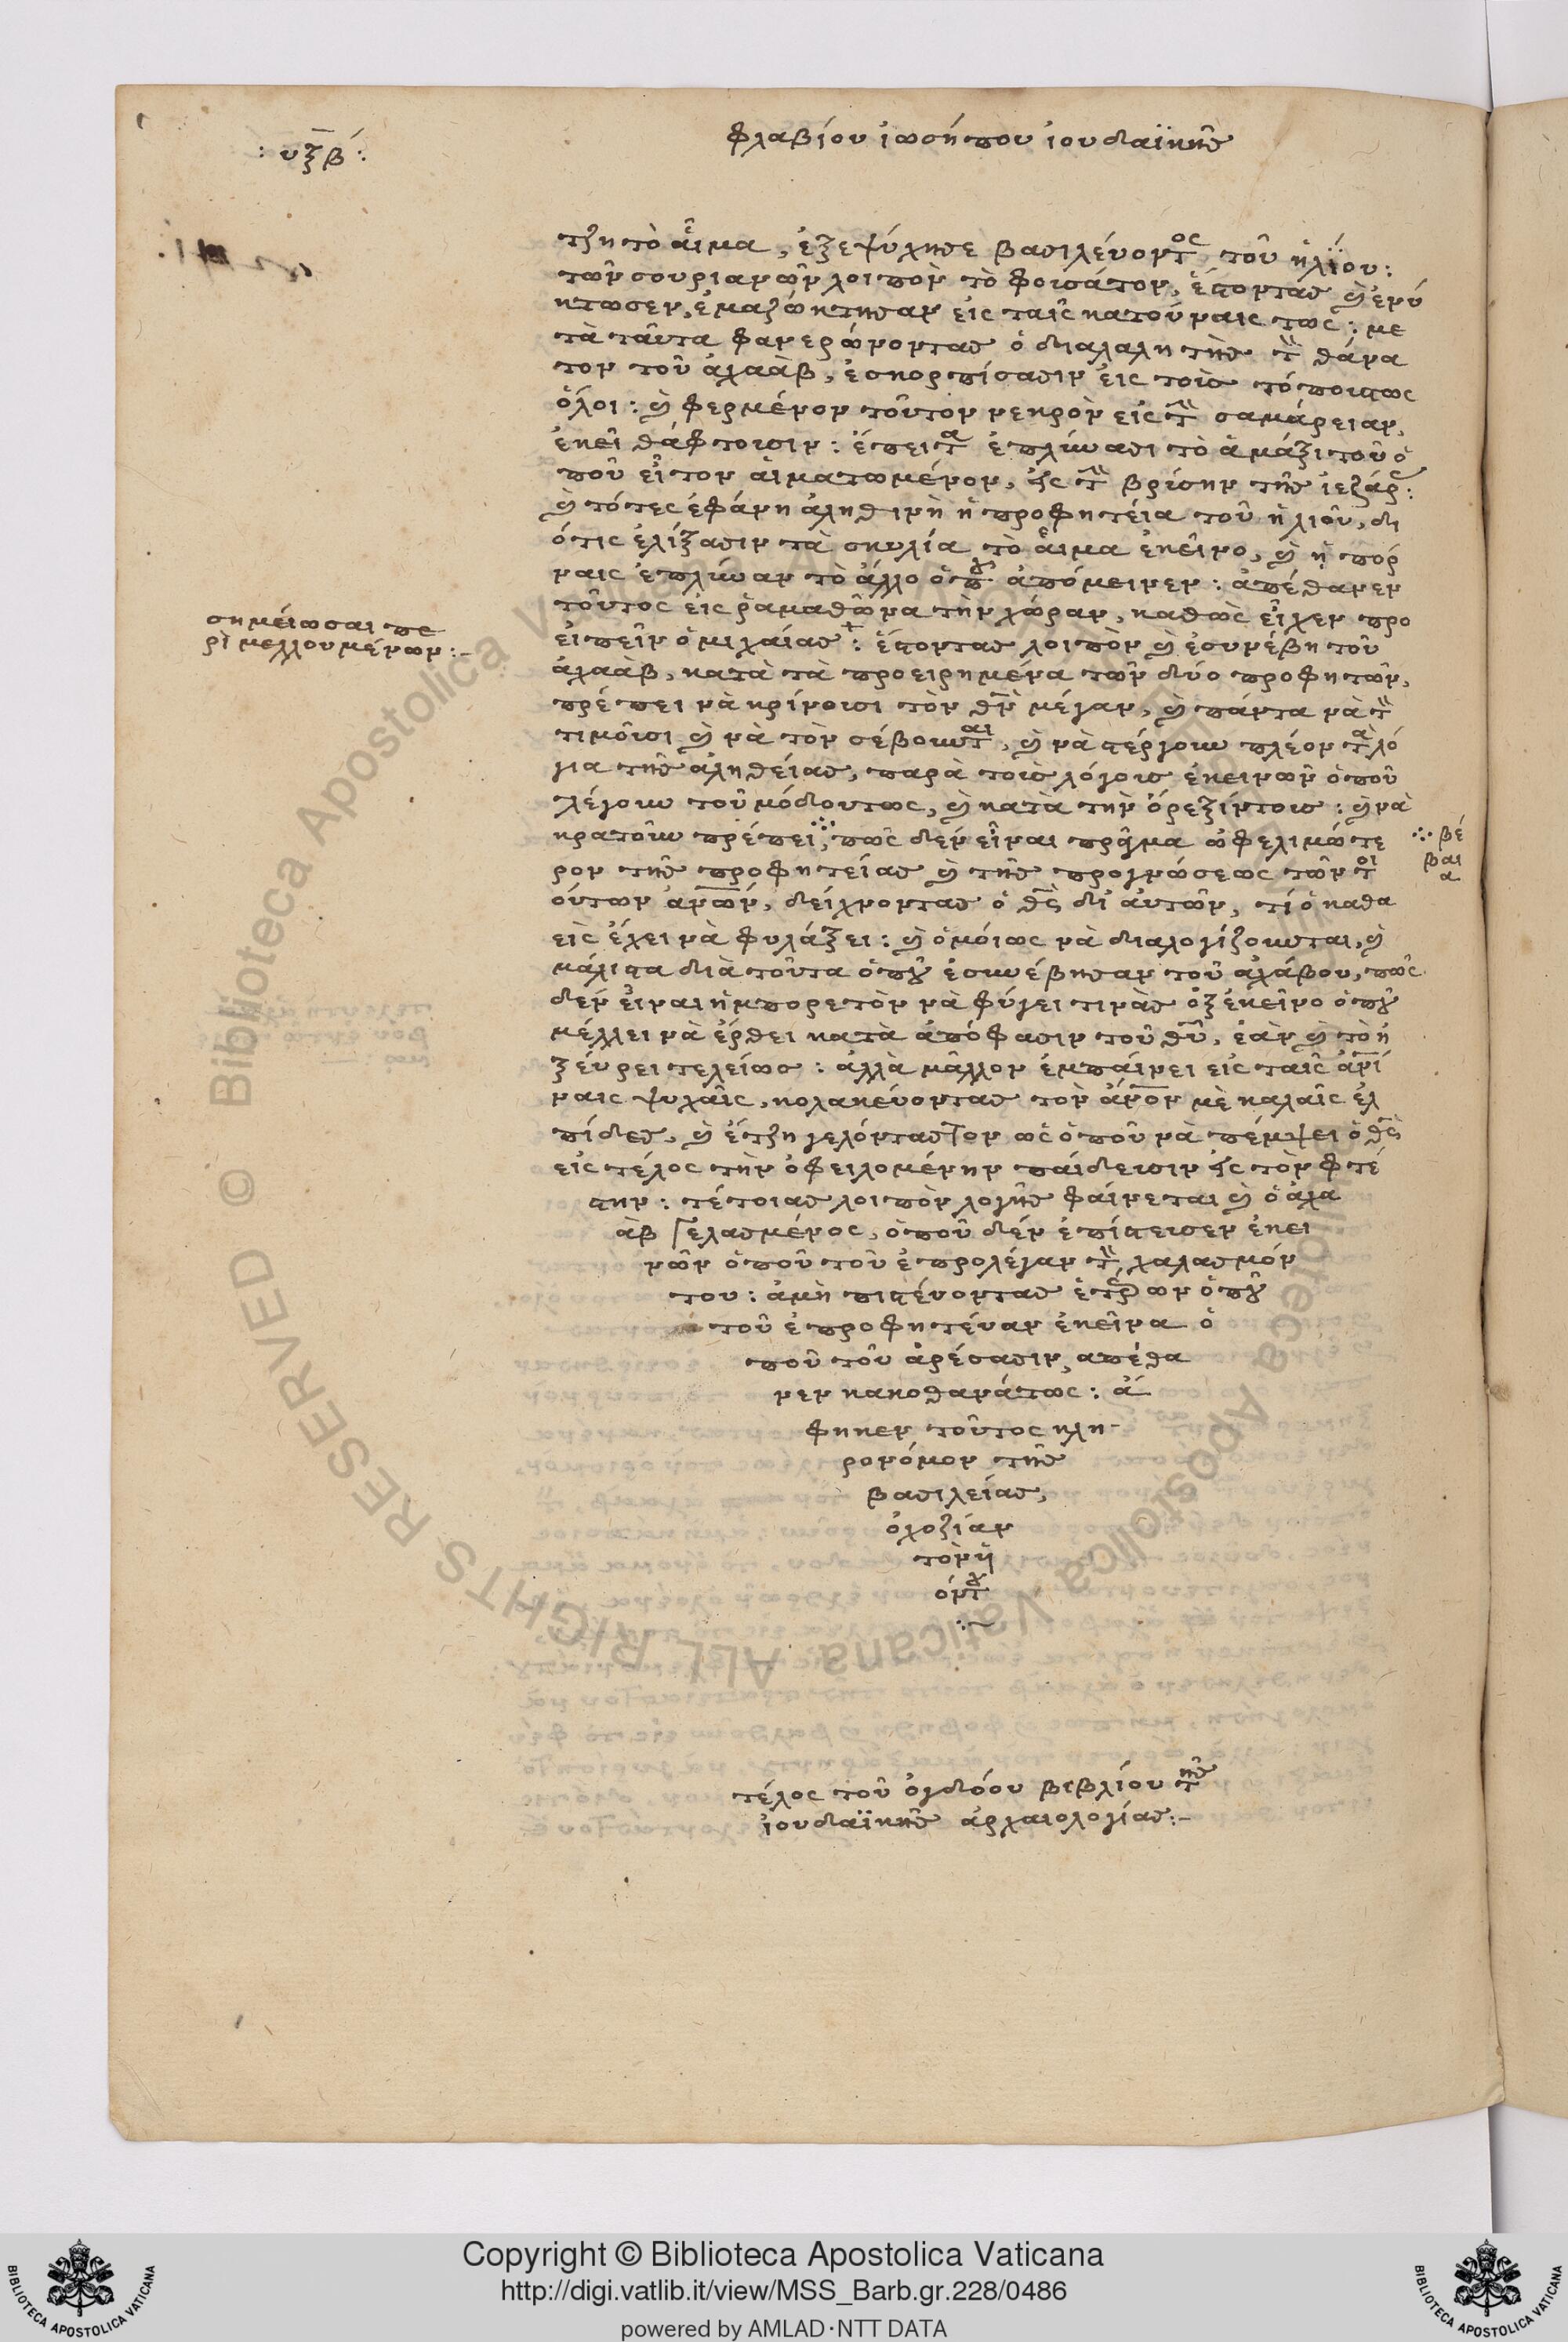 : υξβ´ :
φλαβίου ἰωσήπου ἰουδαϊκῆς
τζη τὸ αἷμα, ἐξεψύχησε βασιλεύοντος τοῦ ἡλίου:
τῶν σουριανῶν λοιπὸν τὸ φουσάτον, ἔστοντας καὶ ἐνύ
κτωσεν, ἐμαζώκτησαν εἰς ταῖς κατούναις τως: με
τὰ ταῦτα φανερώνοντας ὁ διαλαλητὴς τὸν θάνα
τον τοῦ ἀχαὰβ, ἐσκορπίσασιν εἰς τοὺς τόπουςτως
ὅλοι: καὶ φερμένον τοῦτον νεκρὸν εἰς τὴν σαμάρειαν,
ἐκεῖ θάφτουσιν: ἔπειτα ἐπλύνασι τὸ ἀμάξιτου ὁ
ποῦ εἶτον αἱματωμένον, εἰς τὴν βρύσην τῆς ἰεζάρ:
καὶ τότες ἐφάνη ἀληθινὴ ἡ προφητεία τοῦ ἡλιοῦ, δι
ότις ἐλίξασιν τὰ σκυλία τὸ αἷμα ἐκεῖνο, καὶ ἡ πόρ
ναις ἐπλύναν τὸ ἄλλο ὁποῦ ἀπόμεινεν: ἀπέθανεν
τοῦτος εἰς ῥαμαθῶνα τὴν χώραν, καθὼς εἶχεν προ
σημείωσαι πε
ρὶ μελλουμένων:-
εἰπεῖν ὁ μιχαίας: ἔστοντας λοιπὸν καὶ ἐσυνέβη τοῦ
ἀχαὰβ, κατὰ τὰ προειρημένα τῶν δύο προφητῶν,
πρέπει νὰ κρίνουσι τὸν θν μέγαν, καὶ πάντα νὰ τὸν
τιμοῦσι καὶ νὰ τὸν σέβουνται, καὶ νὰ στέργουν πλέον τὰ λό
για τῆς ἀληθείας, παρὰ τοὺς λόγους ἐκεινῶν ὁποῦ
λέγουν τοῦ μόδουτως, καὶ κατὰ τὴν ὄρεξίντους: καὶ νὰ
κρατοῦν πρέπει, πῶς δὲν εἶναι πρᾶγμα ὠφελιμώτε
∴ βέ
βαι
α
ρον τῆς προφητείας καὶ τῆς προγνώσεως τῶν τοι
ούτων ἀνῶν, δείχνοντας ὁ θς δι' αὐτῶν, τί ὁ καθα
εἰς ἔχει νὰ φυλάξει: καὶ ὁμοίως νὰ διαλογίζουνται, καὶ
μάλιστα διὰ τοῦτα ὁποῦ ἐσυνέβησαν τοῦ ἀχάβου, πῶς
δὲν εἶναι ἠμπορετὸν νὰ φύγει τινὰς ὀξ ἐκεῖνο ὁποῦ
μέλλει νὰ ἔρθει κατὰ ἀπόφασιν τοῦ θυ, ἐὰν καὶ τὸ ἠ
ξεύρει τελείως: ἀλλὰ μᾶλλον ἐμπαίνει εἰς ταῖς ἀνί
ναις ψυχαῖς, κολακεύοντας τὸν ἄνον μὲ καλαῖς ἐλ
πίδες, καὶ ἔτζη γελόνταςτον ὡς ὁποῦ νὰ πέμψει ὁ θς
εἰς τέλος τὴν ὀφειλομένην παίδευσιν εἰς τὸν φτέ
στην: τέτοιας λοιπὸν λογῆς φαίνεται καὶ ὁ ἀχα
ὰβ γελασμένος, ὁποῦ δὲν ἐπίστευσεν ἐκει
νῶν ὁποῦ τοῦ ἐπρολέγαν τὸν χαλασμόν
του: ἀμὴ πιστεύοντας ἑτέρων ὁποῦ
τοῦ ἐπροφητεύαν ἐκεῖνα ὁ
ποῦ τοῦ ἀρέσασιν, απέθα
νεν κακοθανάτως: ἀ
φηκεν τοῦτος κλη-
ρονόμον τῆς
βασιλείας,
ὀχοζίαν
τὸν ὑ
όντου
:~
τέλος τοῦ ὀγδόου βιβλίου τῆς
ἰουδαϊκῆς ἀρχαιολογίας:-
Copyright © Biblioteca Apostolica Vaticana
http://digi.vatlib.it/view/MSS_Barb.gr.228/0486
powered by AMLAD·NTT DATA